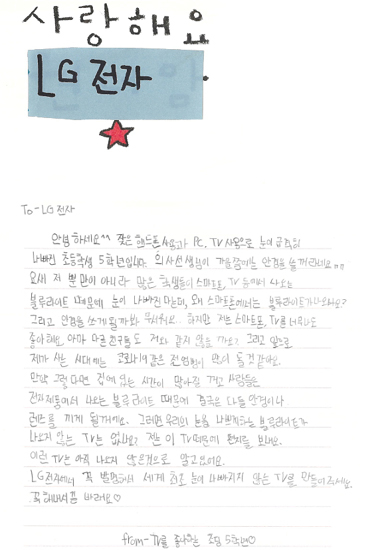 사랑해요
LG전자
To-LG전자
안녕하세요^^ 잦은 핸드폰 사용과 PC, TV사용으로 눈이 급격히
나빠진 초등학생 5학년입니다. 의사선생님이 가을쯤에는 안경을 쓸꺼라네요ㅠㅠ
요새 저 뿐만이 아니라 많은 학생들이 스마트폰, TV 등에서 나오는
블루라이트 때문에 눈이 나빠진다는데, 왜 스마트폰에서는 블루라이트가 나오나요?
그리고 안경을 쓰게 될까봐 무서워요.. 하지만 저는 스마트폰, TV를 너무나도
좋아해요. 아마 다른 친구들도 저와 같지 않을까요? 그리고 앞으로
제가 사는 시대에는 코로나19같은 전염병이 많이 돌것같아요.
만약 그렇다면 집에 있는 시간이 많아질 거고 사람들은
전자제품에서 나오는 블루라이트 때문에 결국은 모두들 안경이나
렌즈를 끼게 될거에요. 그러면 우리의 눈을 나쁘게하는 블루라이트가
나오지 않는 TV는 없나요? 저는 이 TV때문에 편지를 보내요.
이런 TV는 아직 나오지 않은것으로 알고있어요.
LG전자에서 꼭 발명해서 세계 최초 눈이 나빠지지 않는 TV를 만들어주세요.
꼭 해내셔야 바래요♡
from-TV를 좋아하는 초딩 5학년♡